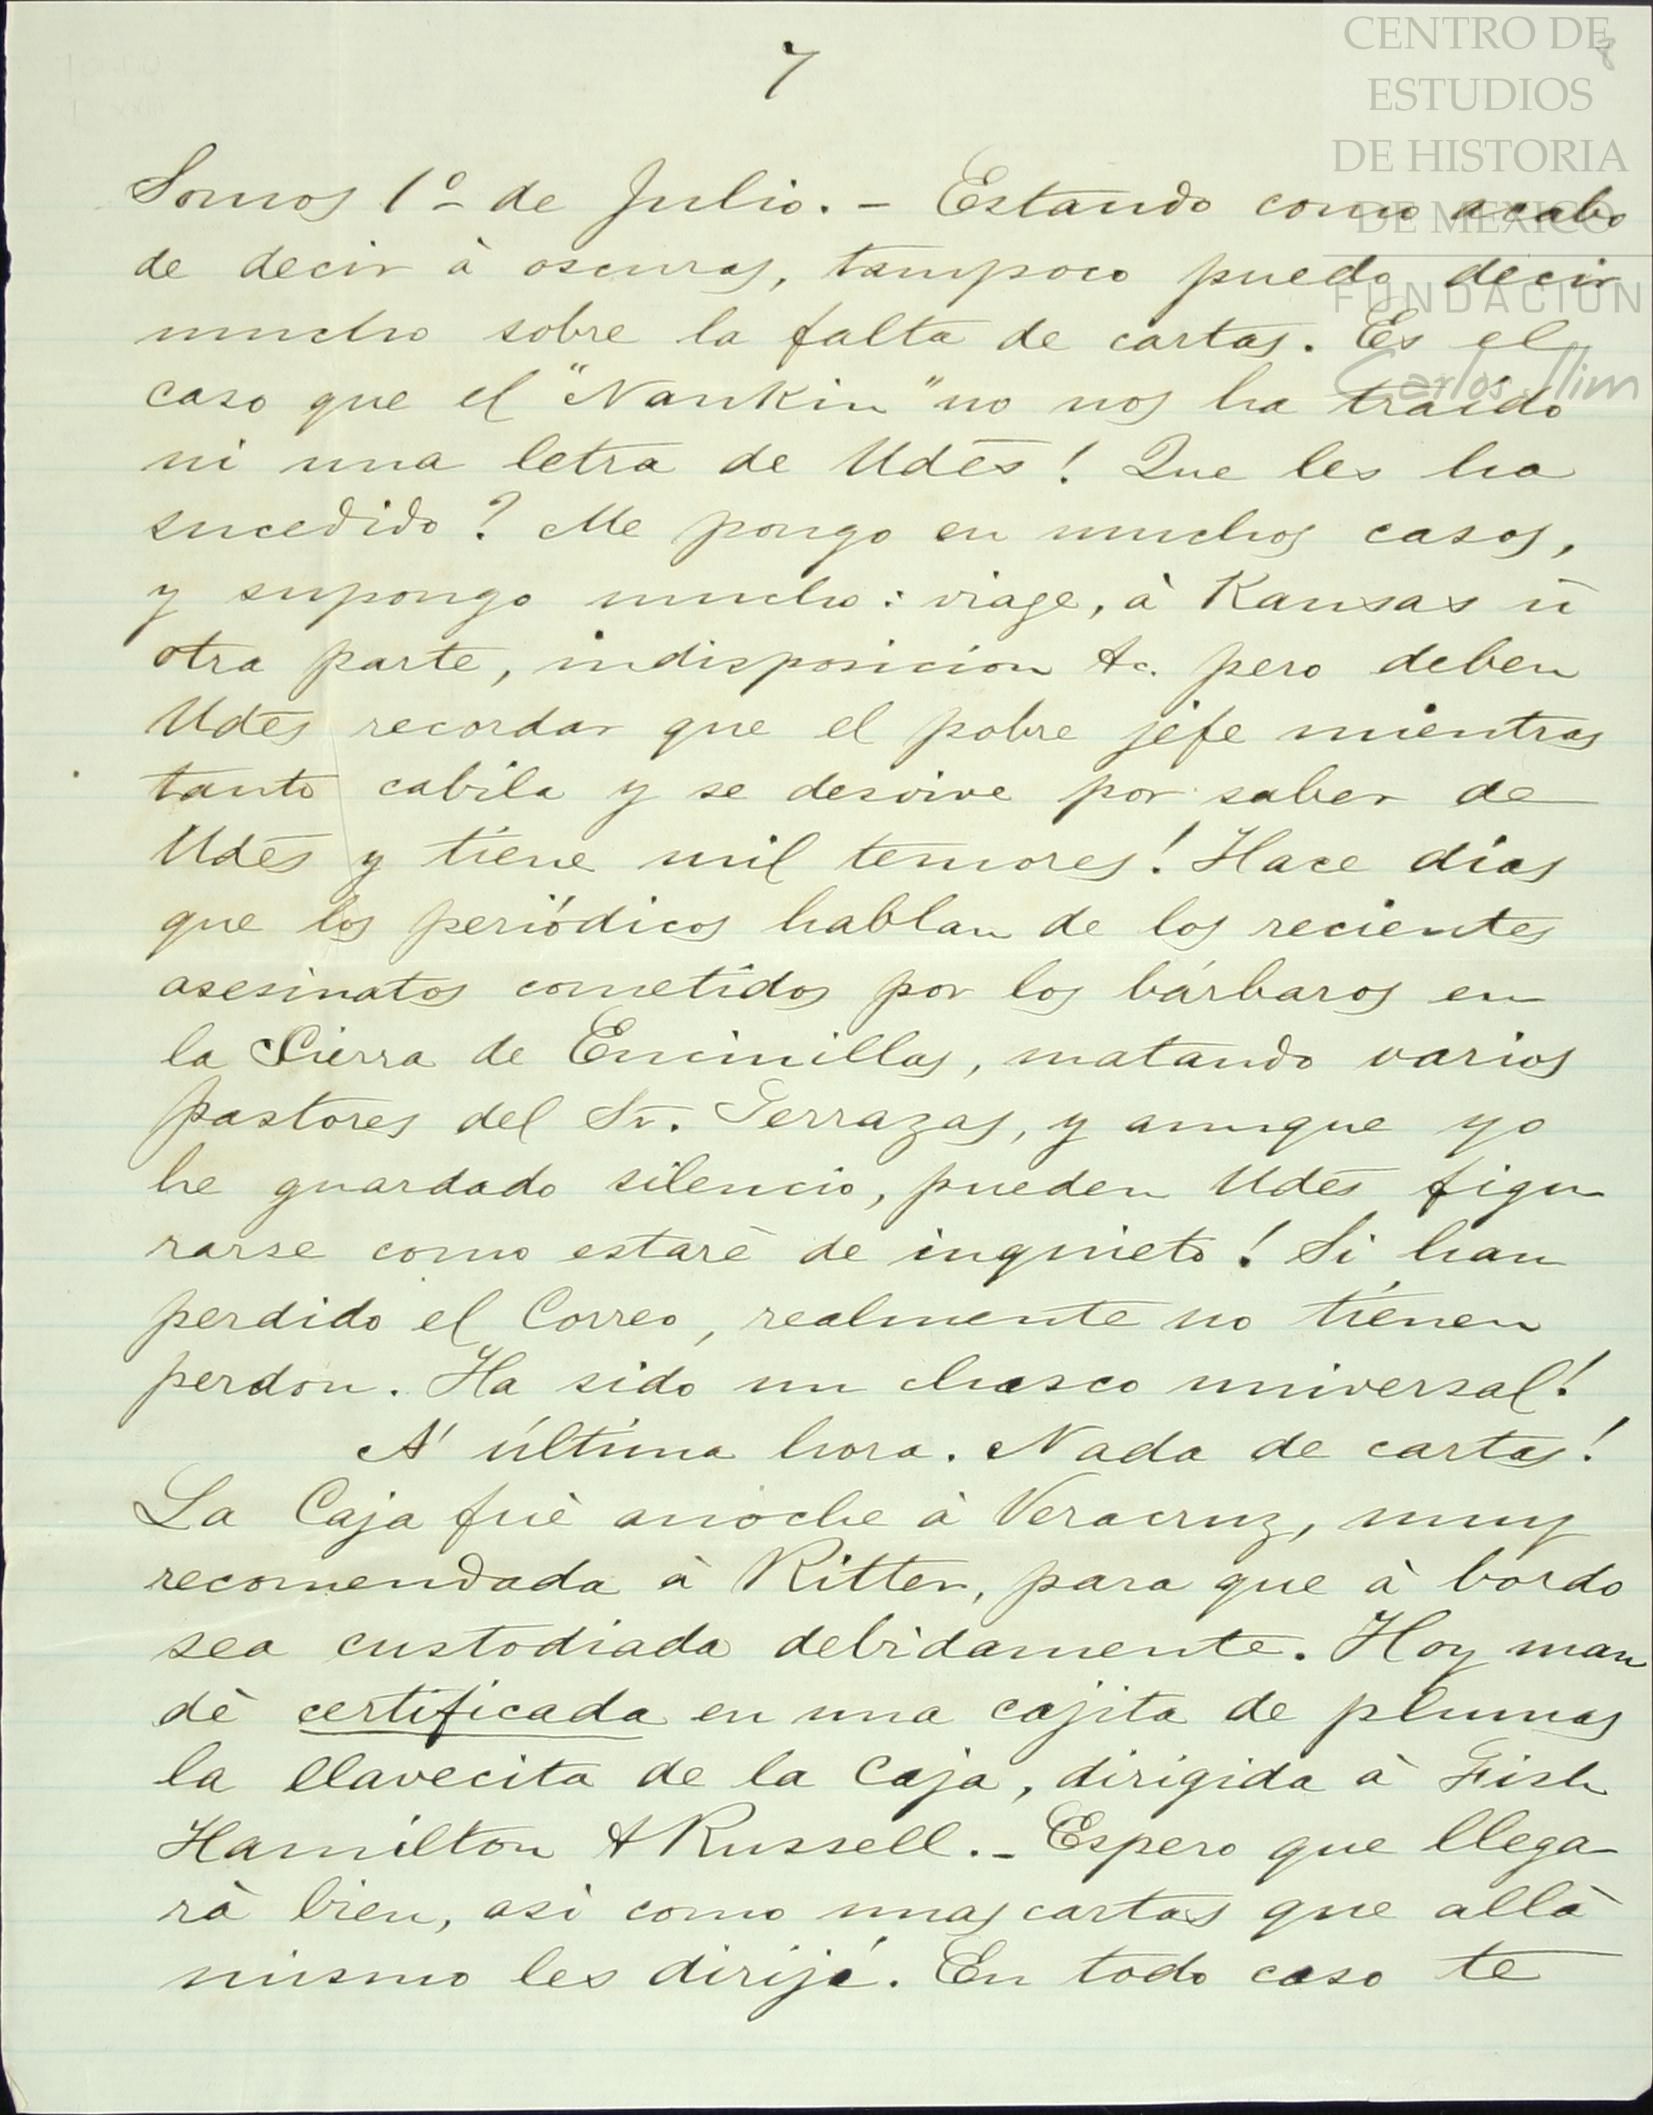 7
8
CENTRO DE
ESTUDIOS
DE HISTORIA
DE MEXICO
FUNDACION
Carlos Slim
Somos 1º de Julio. – Estando como acabo
de decir à oscuras, tampoco puedo decir
mucho sobre la falta de cartas. Es el
caso que el "Nankin" no nos ha traido
ni una letra de Udes! Que les ha
sucedido? Me pongo en muchos casos,
y supongo mucho: viage, à Kansas ù
otra parte, indisposicion &c. pero deben
Udes recordar que el pobre jefe mientras
tanto cabila y se desvive por saber de
Udes y tiene mil temores! Hace dias
que los periódicos hablan de los recientes
asesinatos cometidos por los bárbaros en
la Sierra de Encinillas, matando varios
pastores del Sr. Terrazas, y aunque yo
he guardado silencio, pueden Udes figu
rarse como estarè de inquieto! Si han
perdido el Correo, realmente no tienen
perdon. Ha sido un chasco universal!
A' última hora. Nada de cartas!
La Caja fuè anoche à Veracruz, muy
recomendada à Ritter, para que à bordo
sea custodiada debidamente. Hoy man
dè certificada en una cajita de plumas
la llavecita de la Caja, dirigida à Fish
Hamilton & Russell. – Espero que llega
rà bien, asi como unas cartas que allà
mismo les dirijé. En todo caso te